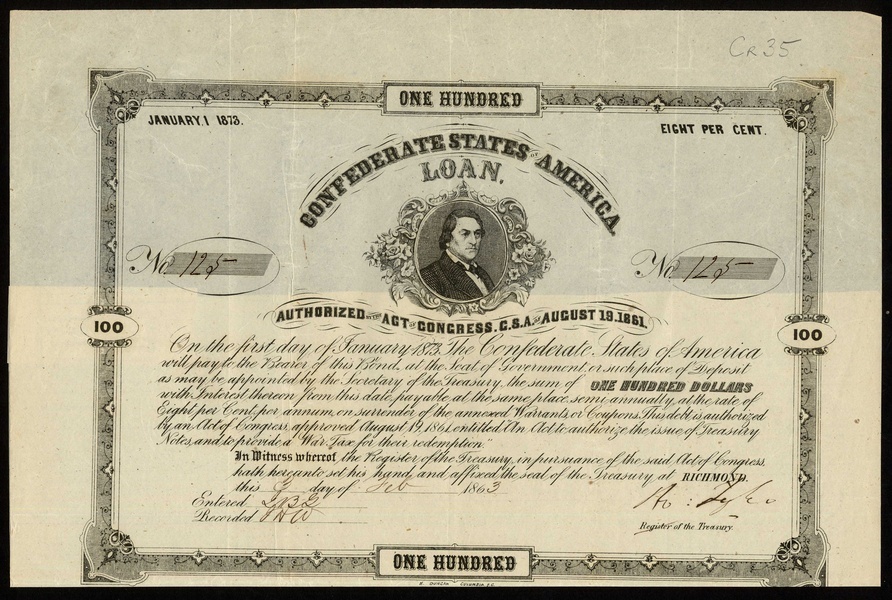 Cr 35
ONE HUNDRED
JANUARY, 1 1873.
EIGHT PER CENT.
CONFEDERATE STATES OF AMERICA.
LOAN.
No 125
No 125
AUTHORIZED BY THE ACT OF CONGRESS. C.S.A. OF AUGUST 19. 1861.
100
100
On the first day of January 1873. The Confederate States of America
will pay to the Bearer of this Bond, at the Seat of Government, or such place of Deposit
as may be appointed by the Secretary of the Treasury, the sum of ONE HUNDRED DOLLARS
with Interest thereon from this date, payable at the same place, semi-annually, at the rate of
Eight per Cent, per annum, on surrender of the annexed Warrants, or Coupons. This debt is authorized
by an Act of Congress, approved August 19, 1861, entitled "An Act to authorize the issue of Treasury
Notes, and to provide a War Tax for their redemption."
In Witness whereof, the Register of the Treasury, in pursuance of the said Act of Congress,
hath hereunto set his hand, and affixed the seal of the Treasury at RICHMOND.
this day of Feb 1863
Entered
Recorded
Register of the Treasury.
ONE HUNDRED
COLUMBIA S.C.